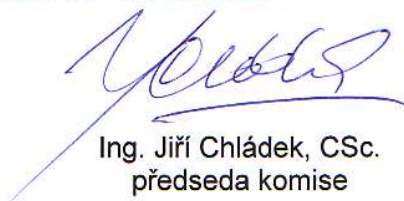 Ing. Jiří Chládek, CSc.
předseda komise